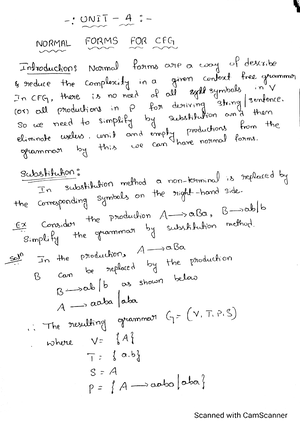 -: UNIT - 4 :-
NORMAL FORMS FOR CFG
Introduction: Normal forms are a way of describe
& reduce the complexity in a given context free grammar
In CFG, there is no need of all symbols in V
(or) all productions in P for deriving string / sentence.
So we need to simplify by substitution and then
eliminate useless, unit and empty productions from the
grammar by this we can have normal forms.
Substitution:
In substitution method a non-terminal is replaced by
the corresponding symbols on the right-hand side.
Ex Consider the production A → aBa, B → ab|b
Simplify the grammar by substitution method.
Soln In the production, A → aBa
B can be replaced by the production
B → ab | b as shown below
A → aaba | aba
∴ The resulting grammar G = (V, T, P, S)
where V = {A}
T = {a,b}
S = A
P = {A → aaba | aba}
Scanned with CamScanner